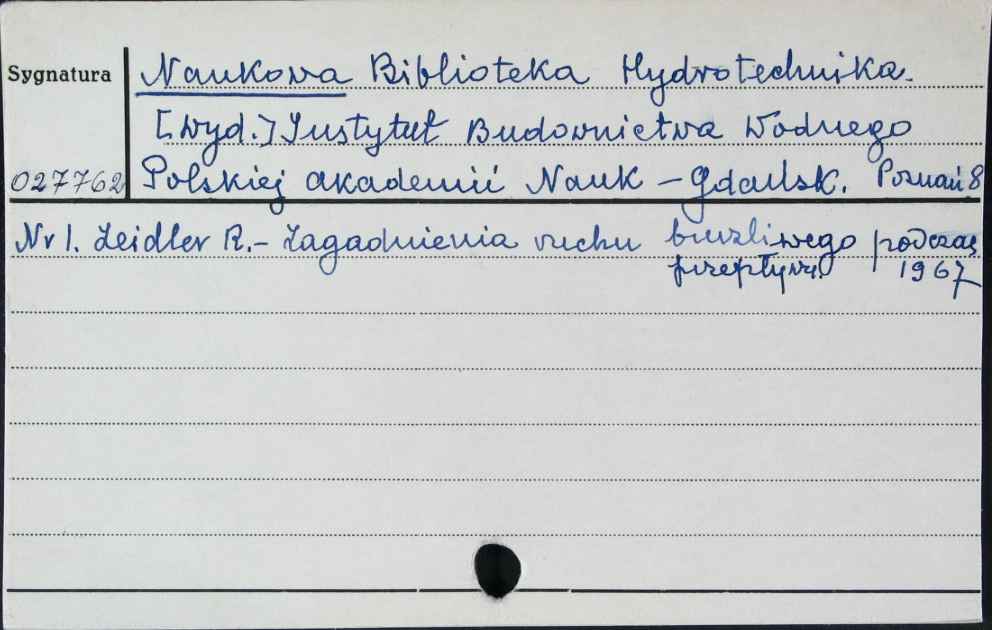 Sygnatura
Naukowa Biblioteka Hydrotechnika.
[wyd.] Instytut Budownictwa Wodnego
027762 Polskiej akademii Nauk – Gdańsk. Poznań 8
Nr 1. Zeidler R. – Zagadnienia ruchu burzliwego podczas
przepływu. 1967